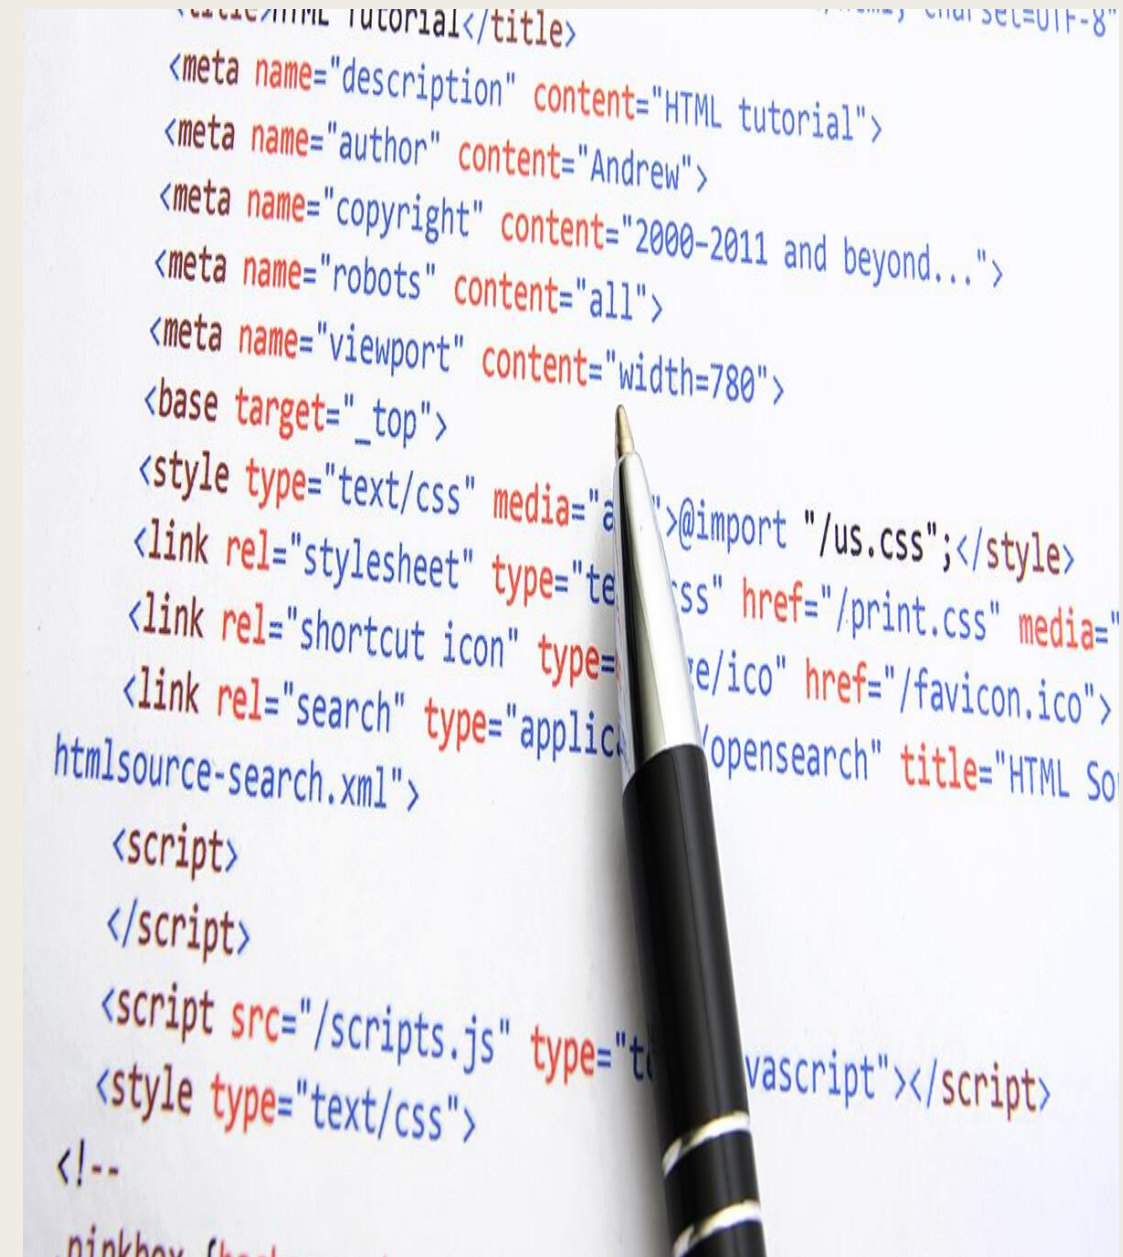 charset=UTF-8"
<title>HTML Tutorial</title>
<meta name="description" content="HTML tutorial">
<meta name="author" content="Andrew">
<meta name="copyright" content="2000-2011 and beyond...">
<meta name="robots" content="all">
<meta name="viewport" content="width=780">
<base target="_top">
<style type="text/css" media="a ">@import "/us.css";</style>
<link rel="stylesheet" type="te ss" href="/print.css" media="
<link rel="shortcut icon" type= e/ico" href="/favicon.ico">
<link rel="search" type="applic /opensearch" title="HTML So
htmlsource-search.xml">
<script>
</script>
<script src="/scripts.js" type="t vascript"></script>
<style type="text/css">
<!--
.pinkbox {